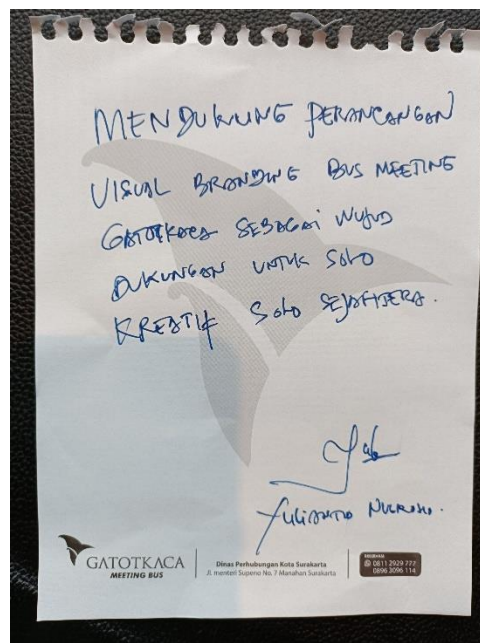 MENDUKUNG PERANCANGAN
VISUAL BRANDING BUS MEETING
GATOTKACA SEBAGAI WUJUD
DUKUNGAN UNTUK SOLO
KREATIF SOLO SEJAHTERA.
Yulianto Nugroho.
GATOTKACA
MEETING BUS
Dinas Perhubungan Kota Surakarta
Jl. menteri Supeno No. 7 Manahan Surakarta
0811 2929 777
0896 2096 114